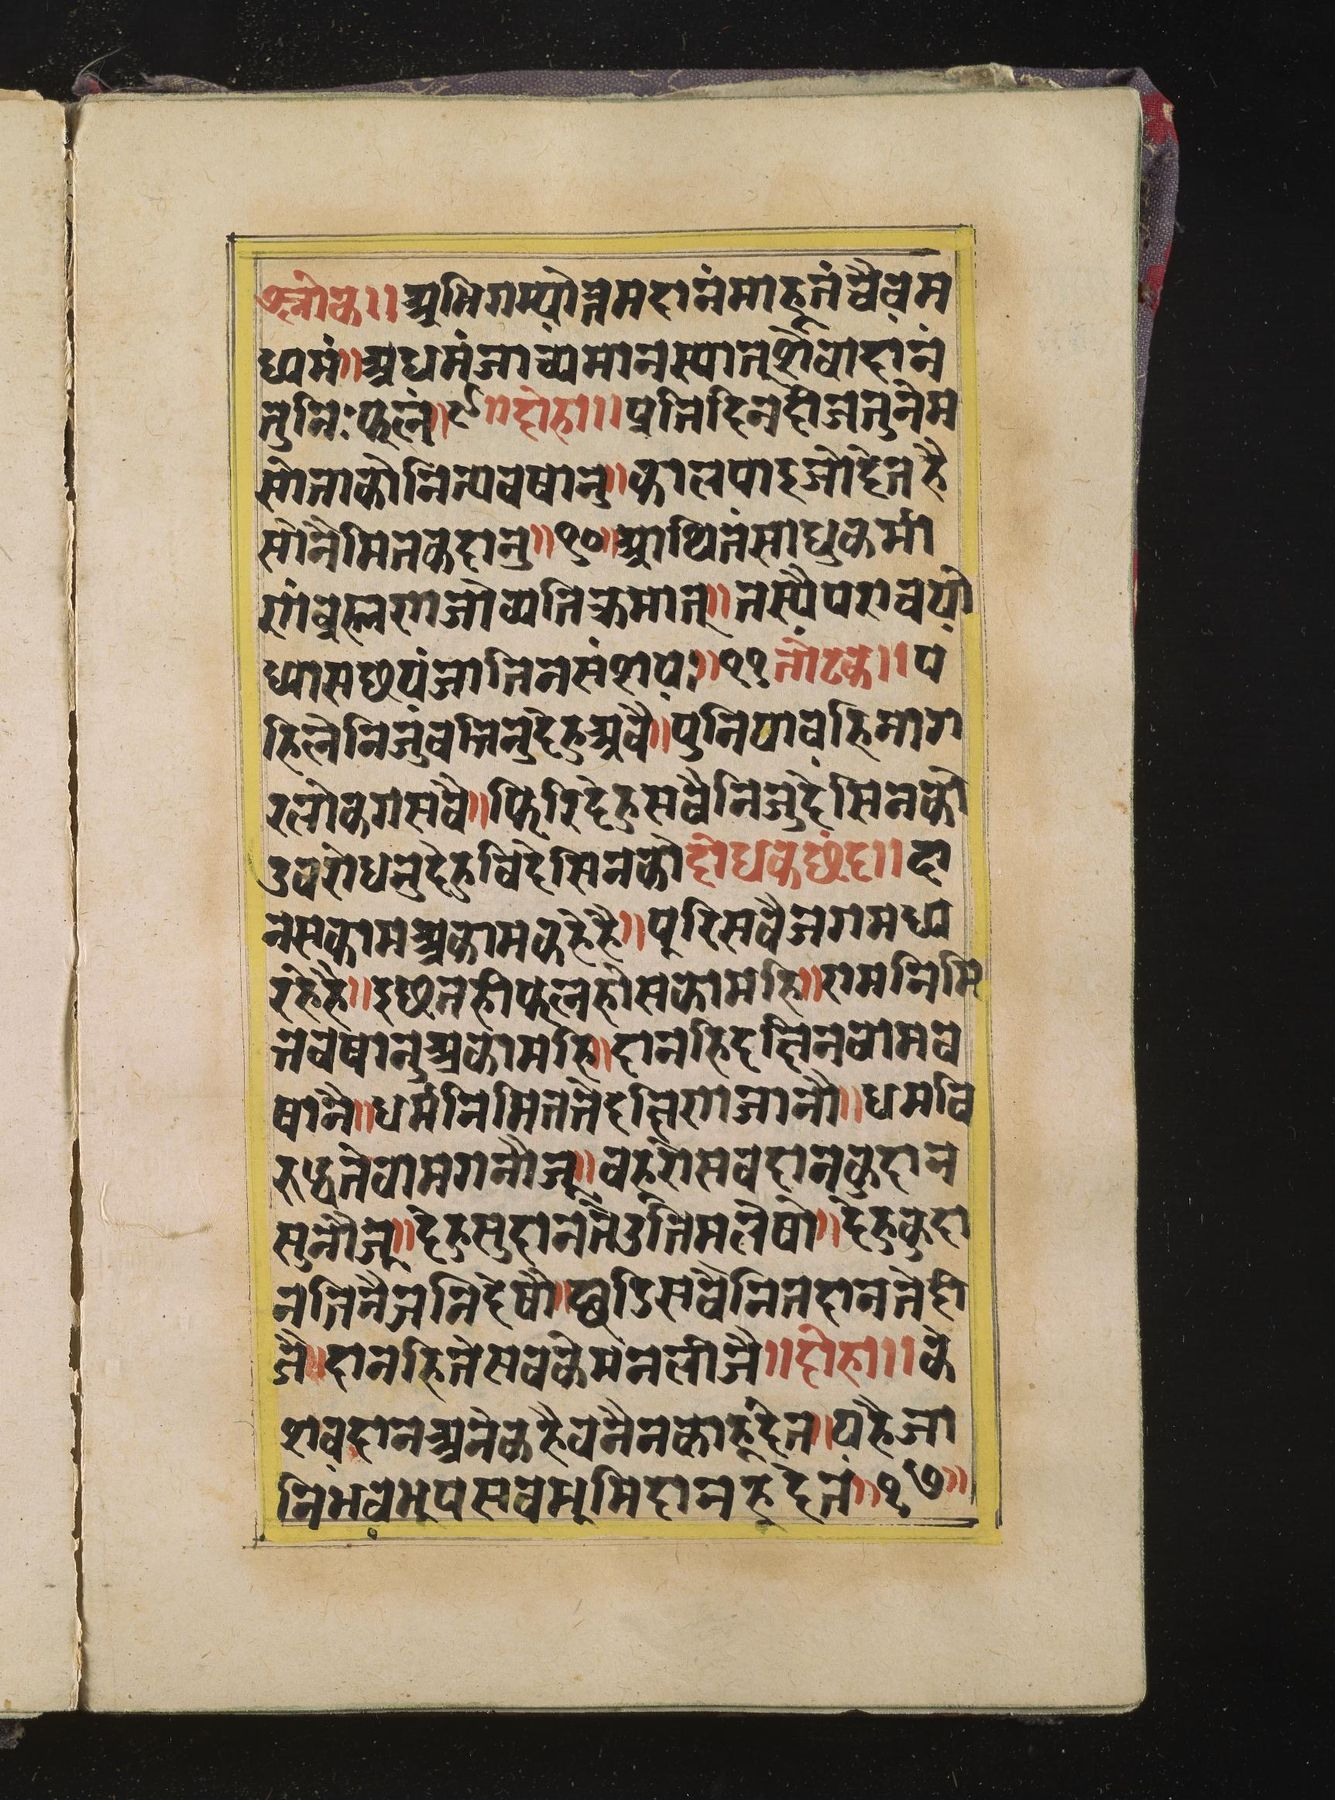 श्लोक॥ अभिगम्योत्तमदानंमाहूतंचैवम
ध्यमं॥अधमंजाच्यमानस्यात्सेवादानं
तुनिःफलं॥९॥दोहा॥प्रतिदिनदीजतुनेम
सोताकौनित्यवषानु॥कालपाइजोदेतहै
सोनैमितकदानु॥१०॥आश्रितंसाधुकर्मा
णंब्रह्मणाजोव्यतिक्रमात्॥तस्यैपरावयो
ध्यासछयंजातिनसंशयः॥११तोटक॥प
हिलेनिजुंवर्त्तिनुदेहुअवै॥पुनिपावहिमाग
रलोकगसवै॥फिरिदेहुसवैनिजुदेसिनकौ
उवरोधनुदेहुविदेसिनकौदोधकछंद॥दा
नसकामअकामकहेहै॥पूरिसवैजगमध्य
रहेहै॥इछितहीफलहोसकामहि॥रामनिमि
तेवषानुअकामहि॥दानहिदछिनवामव
षानै॥धर्मनिमिततेदछिणजानौ॥धर्मवि
रुधतेवामगनौजू॥वहरोसवदानकुदान
सुनौजू॥देहुसुदानतैउतिमलेषो॥देहुकुदा
नतिनैजनिदेषौ॥छाडिसवैनितदानतेही
जै॥दानहितेसवकेमनलीजै॥दोहा॥के
शवदानअनेकहैवनैनकाहूदेत॥यहैजा
निभवभूपसवभूमिदानहूदेत॥१७॥